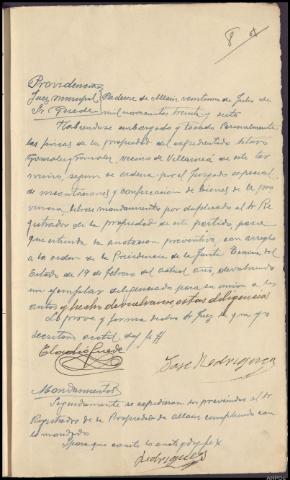 8 
Providencia
Juez municipal Paderne de Allariz veintiuno de Julio de
Sr. Puede mil novecientos treinta y siete
Habiendose embargado y tasado
las fincas de la propiedad del expedientado
Gonzalez vecino de de este ter
mino, segun se ordena por el juzgado especial
de incautaciones y confiscacion de bienes de la pro
vincia librese mandamiento por duplicado al Sr Re
gistrador de la propiedad de este partido, para
que extienda la anotacion preventiva, con arreglo
a la orden de la Presidencia de la Junta Tecnica del
Estado de 19 de febrero del actual año, devolviendo
un ejemplar diligenciado para su union a los
autos y hecho devuelvase estas diligencias
Lo proveyo y firma dicho Sr Juez de que yo
secretario doy fe
Jose Rodriguez
Mandamiento
Seguidamente se expidieron los prevenidos al Sr
Registrador de la Propiedad de Allariz cumpliendo con
lo mandado
Y para que conste lo anoto y doy fe
Rodriguez
AHPOU